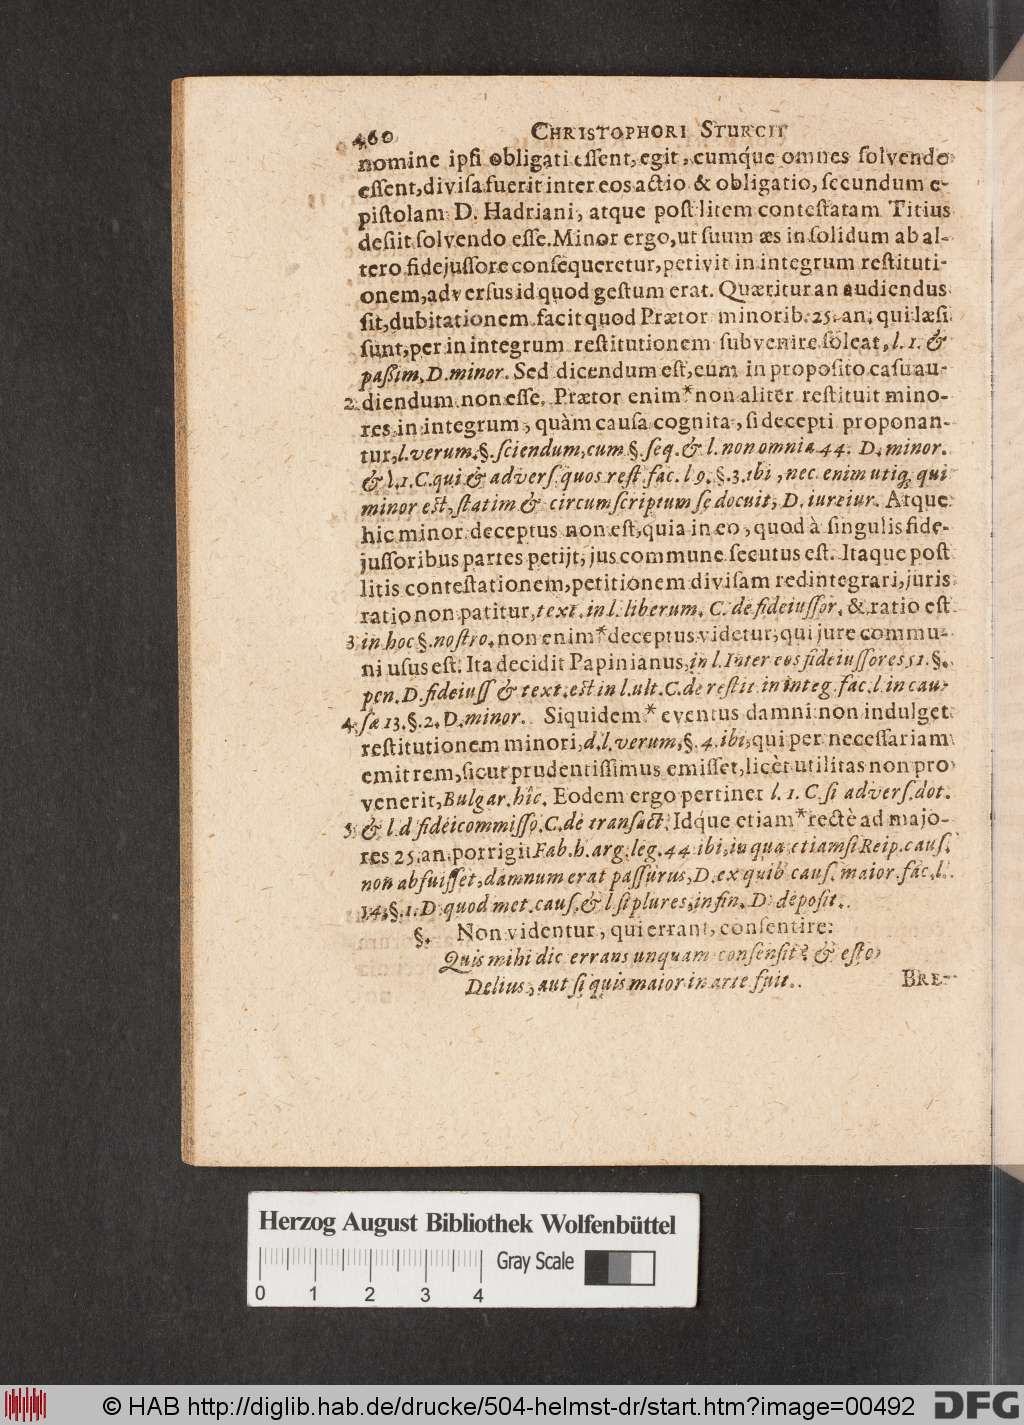 460 CHRISTOPHORI STURCII
nomine ipſi obligati eſſent, egit, cumq́ue omnes ſolvendo
eſſent, diviſa fuerit inter eos actio & obligatio, ſecundum e-
piſtolam D. Hadriani, atque poſt litem conteſtatam Titius
deſiit ſolvendo eſſe. Minor ergo, ut ſuum æs in ſolidum ab al-
tero fidejuſſore conſequeretur, petivit in integrum reſtituti-
onem, adverſus id quod geſtum erat. Quæritur an audiendus
ſit, dubitationem facit quod Prætor minorib. 25. an. qui læſi
ſunt, per in integrum reſtitutionem ſubvenire ſoleat, l. 1. &
paßim, D. minor. Sed dicendum eſt, eum in propoſito caſu au-
2 diendum non eſſe. Prætor enim * non aliter reſtituit mino-
res in integrum, quàm cauſa cognita, ſi decepti proponan-
tur, l. verum. §. ſciendum, cum §. ſeq. & l. non omnia 44. D. minor.
& l. 1. C. qui & adverſ. quos reſt. fac. l 9. §. 3. ibi, nec enim utiq; qui
minor eſt, ſtatim & circumſcriptum ſe docuit, D. iureiur. Atque
hic minor deceptus non eſt, quia in eo, quod à ſingulis fide-
juſſoribus partes petijt, jus commune ſecutus eſt. Itaque poſt
litis conteſtationem, petitionem diviſam redintegrari, juris
ratio non patitur, text. in l. liberum. C. de fideiuſſor. & ratio eſt
3 in hoc §. noſtro. non enim * deceptus videtur, qui jure commu-
ni uſus eſt. Ita decidit Papinianus, in l. Inter eos fideiuſſores 51. §.
pen. D. fideiuſſ & text. eſt in l. ult. C. de reſtit in integ. fac. l. in cau-
4 ſæ 13. §. 2. D. minor. Siquidem * eventus damni non indulget
reſtitutionem minori, d. l. verum, §. 4. ibi, qui per neceſſariam
emit rem, ſicut prudentiſſimus emiſſet, licèt utilitas non pro
venerit, Bulgar. hîc. Eodem ergo pertinet l. 1. C. ſi adverſ. dot.
5 & l. d fideicommiſſo. C. de tranſact. Idq́ue etiam * rectè ad majo-
res 25. an. porrigit Fab. h. arg. leg. 44 ibi, in qua etiamſi Reip. cauſ.
non abfuiſſet, damnum erat paſſurus, D. ex quib cauſ. maior. fac. l.
14. §. 1. D. quod met. cauſ. & l ſi plures, in fin. D. depoſit.
§. Non videntur, qui errant, conſentire:
Quis mihi dic errans unquam conſenſit? & eſto
Delius, aut ſi quis maior in arte fuit.
BRE-
Herzog August Bibliothek Wolfenbüttel
Gray Scale
0 1 2 3 4
© HAB http://diglib.hab.de/drucke/504-helmst-dr/start.htm?image=00492 DFG